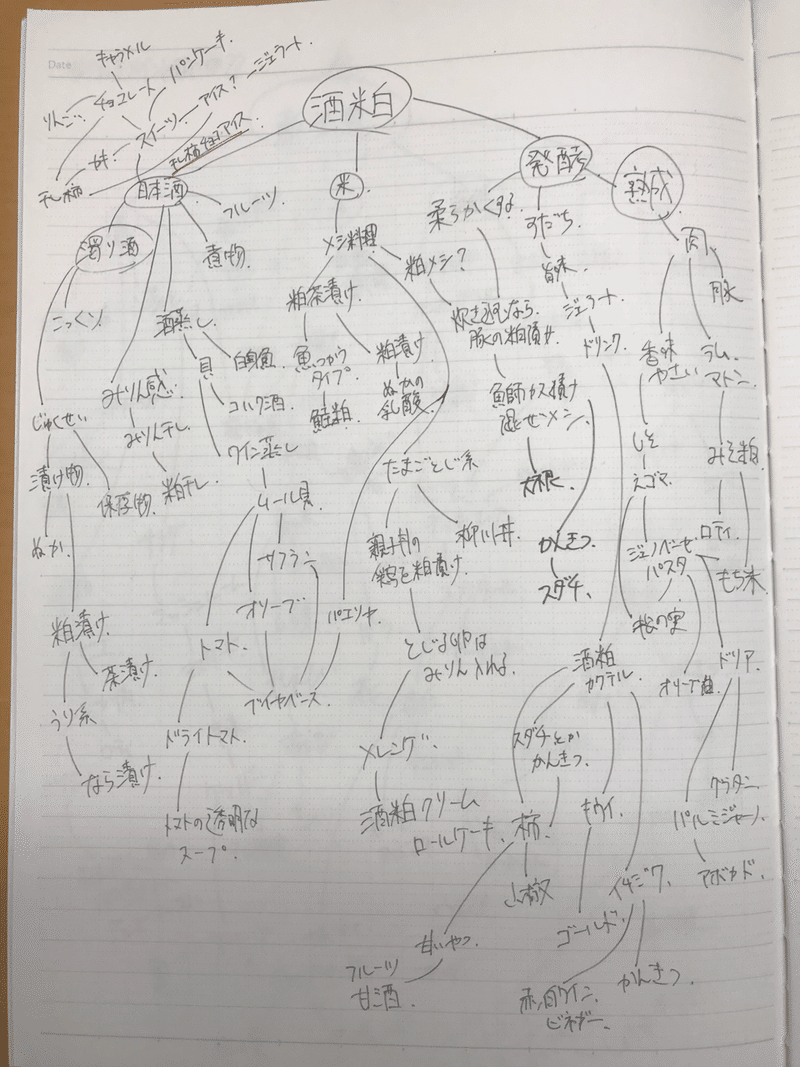 Date
キャラメル
パンケーキ.
りんご.
チョコレート
スイーツ.
アイス?
ジェラート.
干し柿
干し柿チョコアイス
酒粕
日本酒
米
発酵
熟成
濁り酒
フルーツ.
煮物.
メシ料理
粕メシ?
柔らかくする.
すだち.
旨味.
ジェラート.
ドリンク.
肉.
豚
香味
やさい
ラム.
マトン.
こっくり.
酒蒸し.
貝
白身魚
コハク酒.
ワイン蒸し
みりん感.
みりん干し.
粕干し.
じゅくせい
漬け物.
保存物.
ぬか.
粕漬け.
茶漬け.
うり系
なら漬け.
粕茶漬け.
魚つかう
タイプ.
鮭粕.
粕漬け
ぬかの
乳酸.
炊き込むなら.
豚の粕漬け.
混ぜメシ.
大根.
かんきつ.
スダチ.
しそ
エゴマ.
ジェノベーゼ
パスタ
松の実
みそ粕.
ロティ.
もち米.
ムール貝
サフラン
オリーブ
トマト.
ドライトマト.
トマトの透明な
スープ.
ブイヤベース
パエリヤ.
たまごとじ系
親子丼の
鶏を粕漬け.
柳川丼.
とじる卵は
みりん入れる.
メレンゲ.
酒粕クリーム
ロールケーキ.
酒粕
カクテル.
スダチとか
かんきつ.
キウイ.
柿.
山椒
甘いやつ.
フルーツ
甘酒.
ゴールド.
イチジク.
赤,白ワイン.
ビネガー.
かんきつ.
ドリア.
グラタン.
パルミジャーノ.
アボカド.